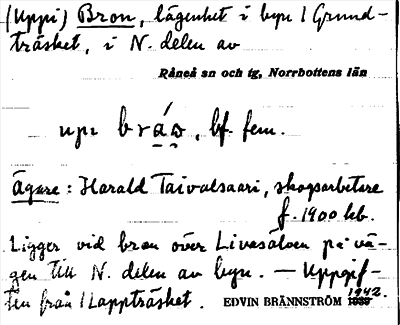 (Uppi) Bron, lägenhet i byn 1 Grund-
träsket, i N. delen av
Råneå sn och tg, Norrbottens län
upı brás, bf. fem.
Ägare: Harald Taivalsaari, skogsarbetare
f. 1900 kb.
Ligger vid bron över Livasälven på vä-
gen till N. delen av byn. – Uppgif-
ten från 1 Lappträsket. EDVIN BRÄNNSTRÖM 1942.